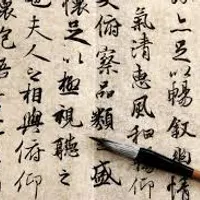 亦足以暢叙幽情
氣清惠風和暢仰
大俯察品類盛
懷足以極視聽之
也夫人之相與俯仰
懷抱